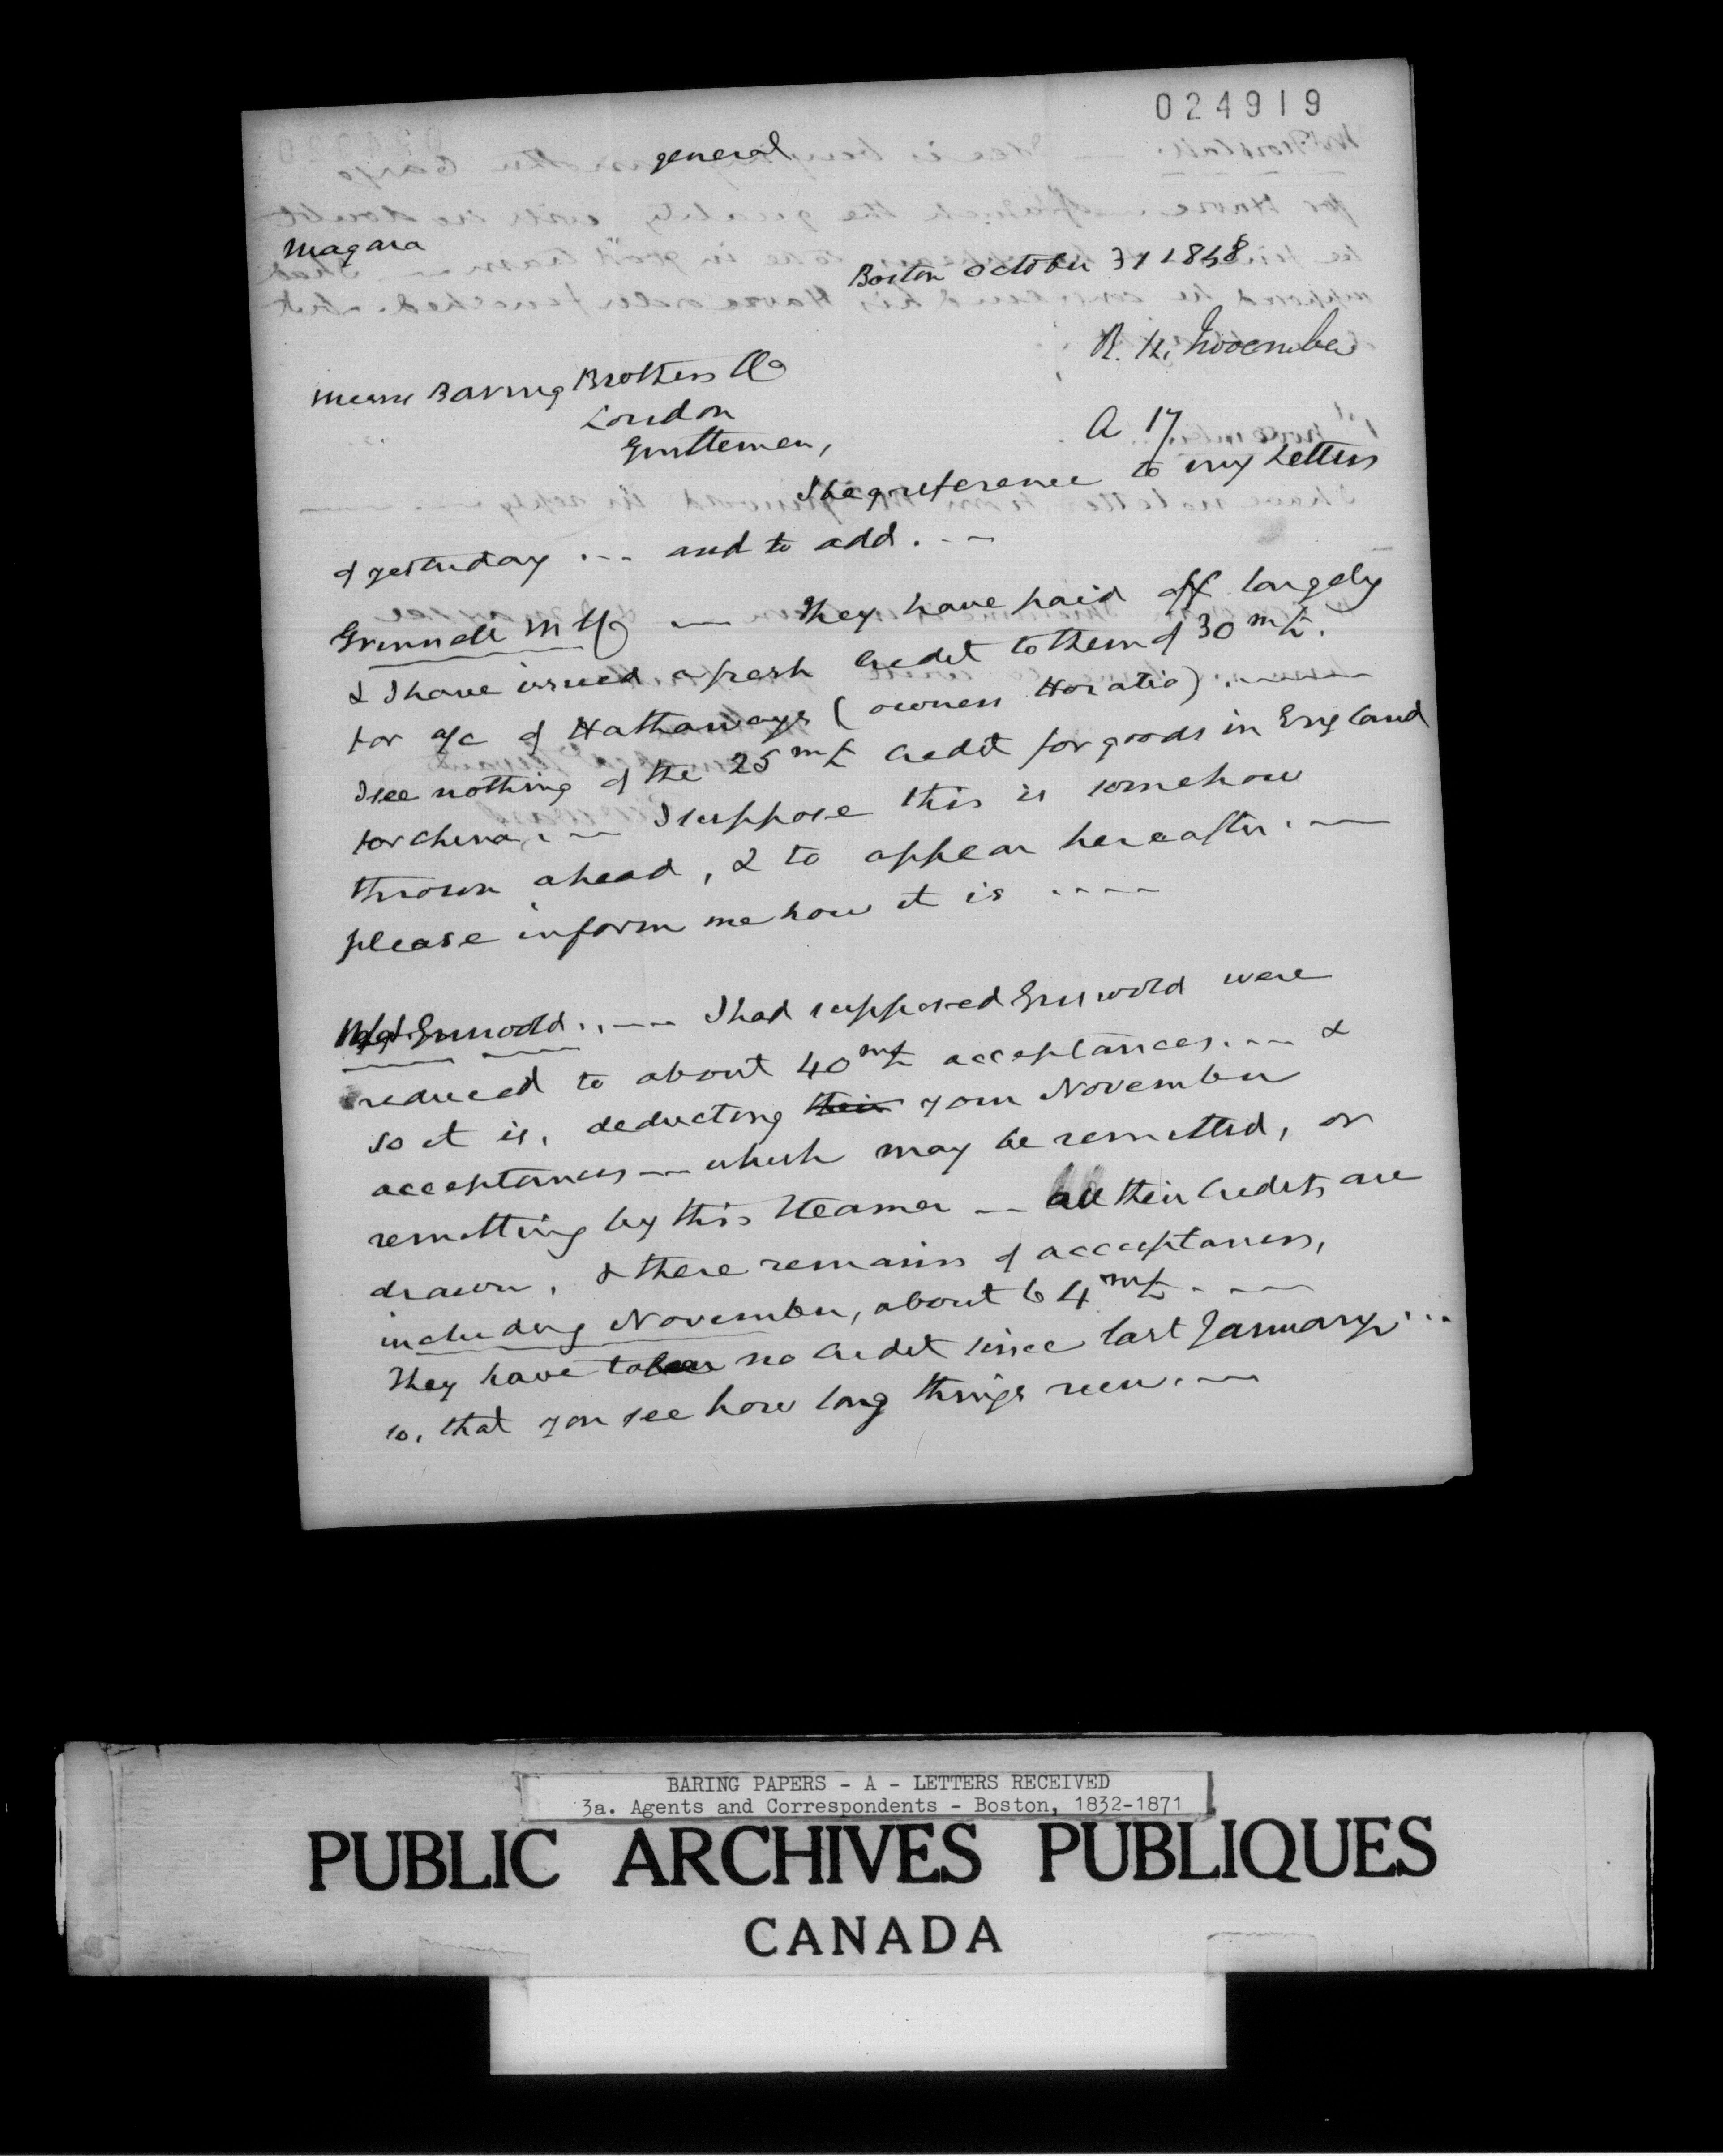 024919
general
Niagara
Boston October 31 1848
R. 14 November
A 17
Messrs Baring Brothers & Co
London
Gentlemen,
I beg reference to my Letters
of yesterday ... and to add. --
Grinnell M & Co — They have paid off largely
& I have issued a fresh Credit to them of 30 m£.
for a/c of Hathaways (owners Horatio) . ----
I see nothing of the 25 m£ Credit for goods in England
for China, . — I suppose this is somehow
thrown ahead, & to appear hereafter . —
please inform me how it is ....
Griswold . . --- I had supposed Griswold were
reduced to about 40 m£ acceptances. -- &
so it is, deducting their your November
acceptances — which may be remitted, or
remitting by this Steamer — all their Credits are
drawn, & there remains of acceptances,
including November, about 64 m£. —
They have taken no Credit since last January. ...
so, that you see how long things run. —
BARING PAPERS - A - LETTERS RECEIVED
3a. Agents and Correspondents - Boston, 1832-1871
PUBLIC ARCHIVES PUBLIQUES
CANADA